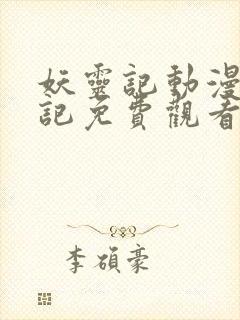 妖靈記動漫
記免費觀看
李碩豪